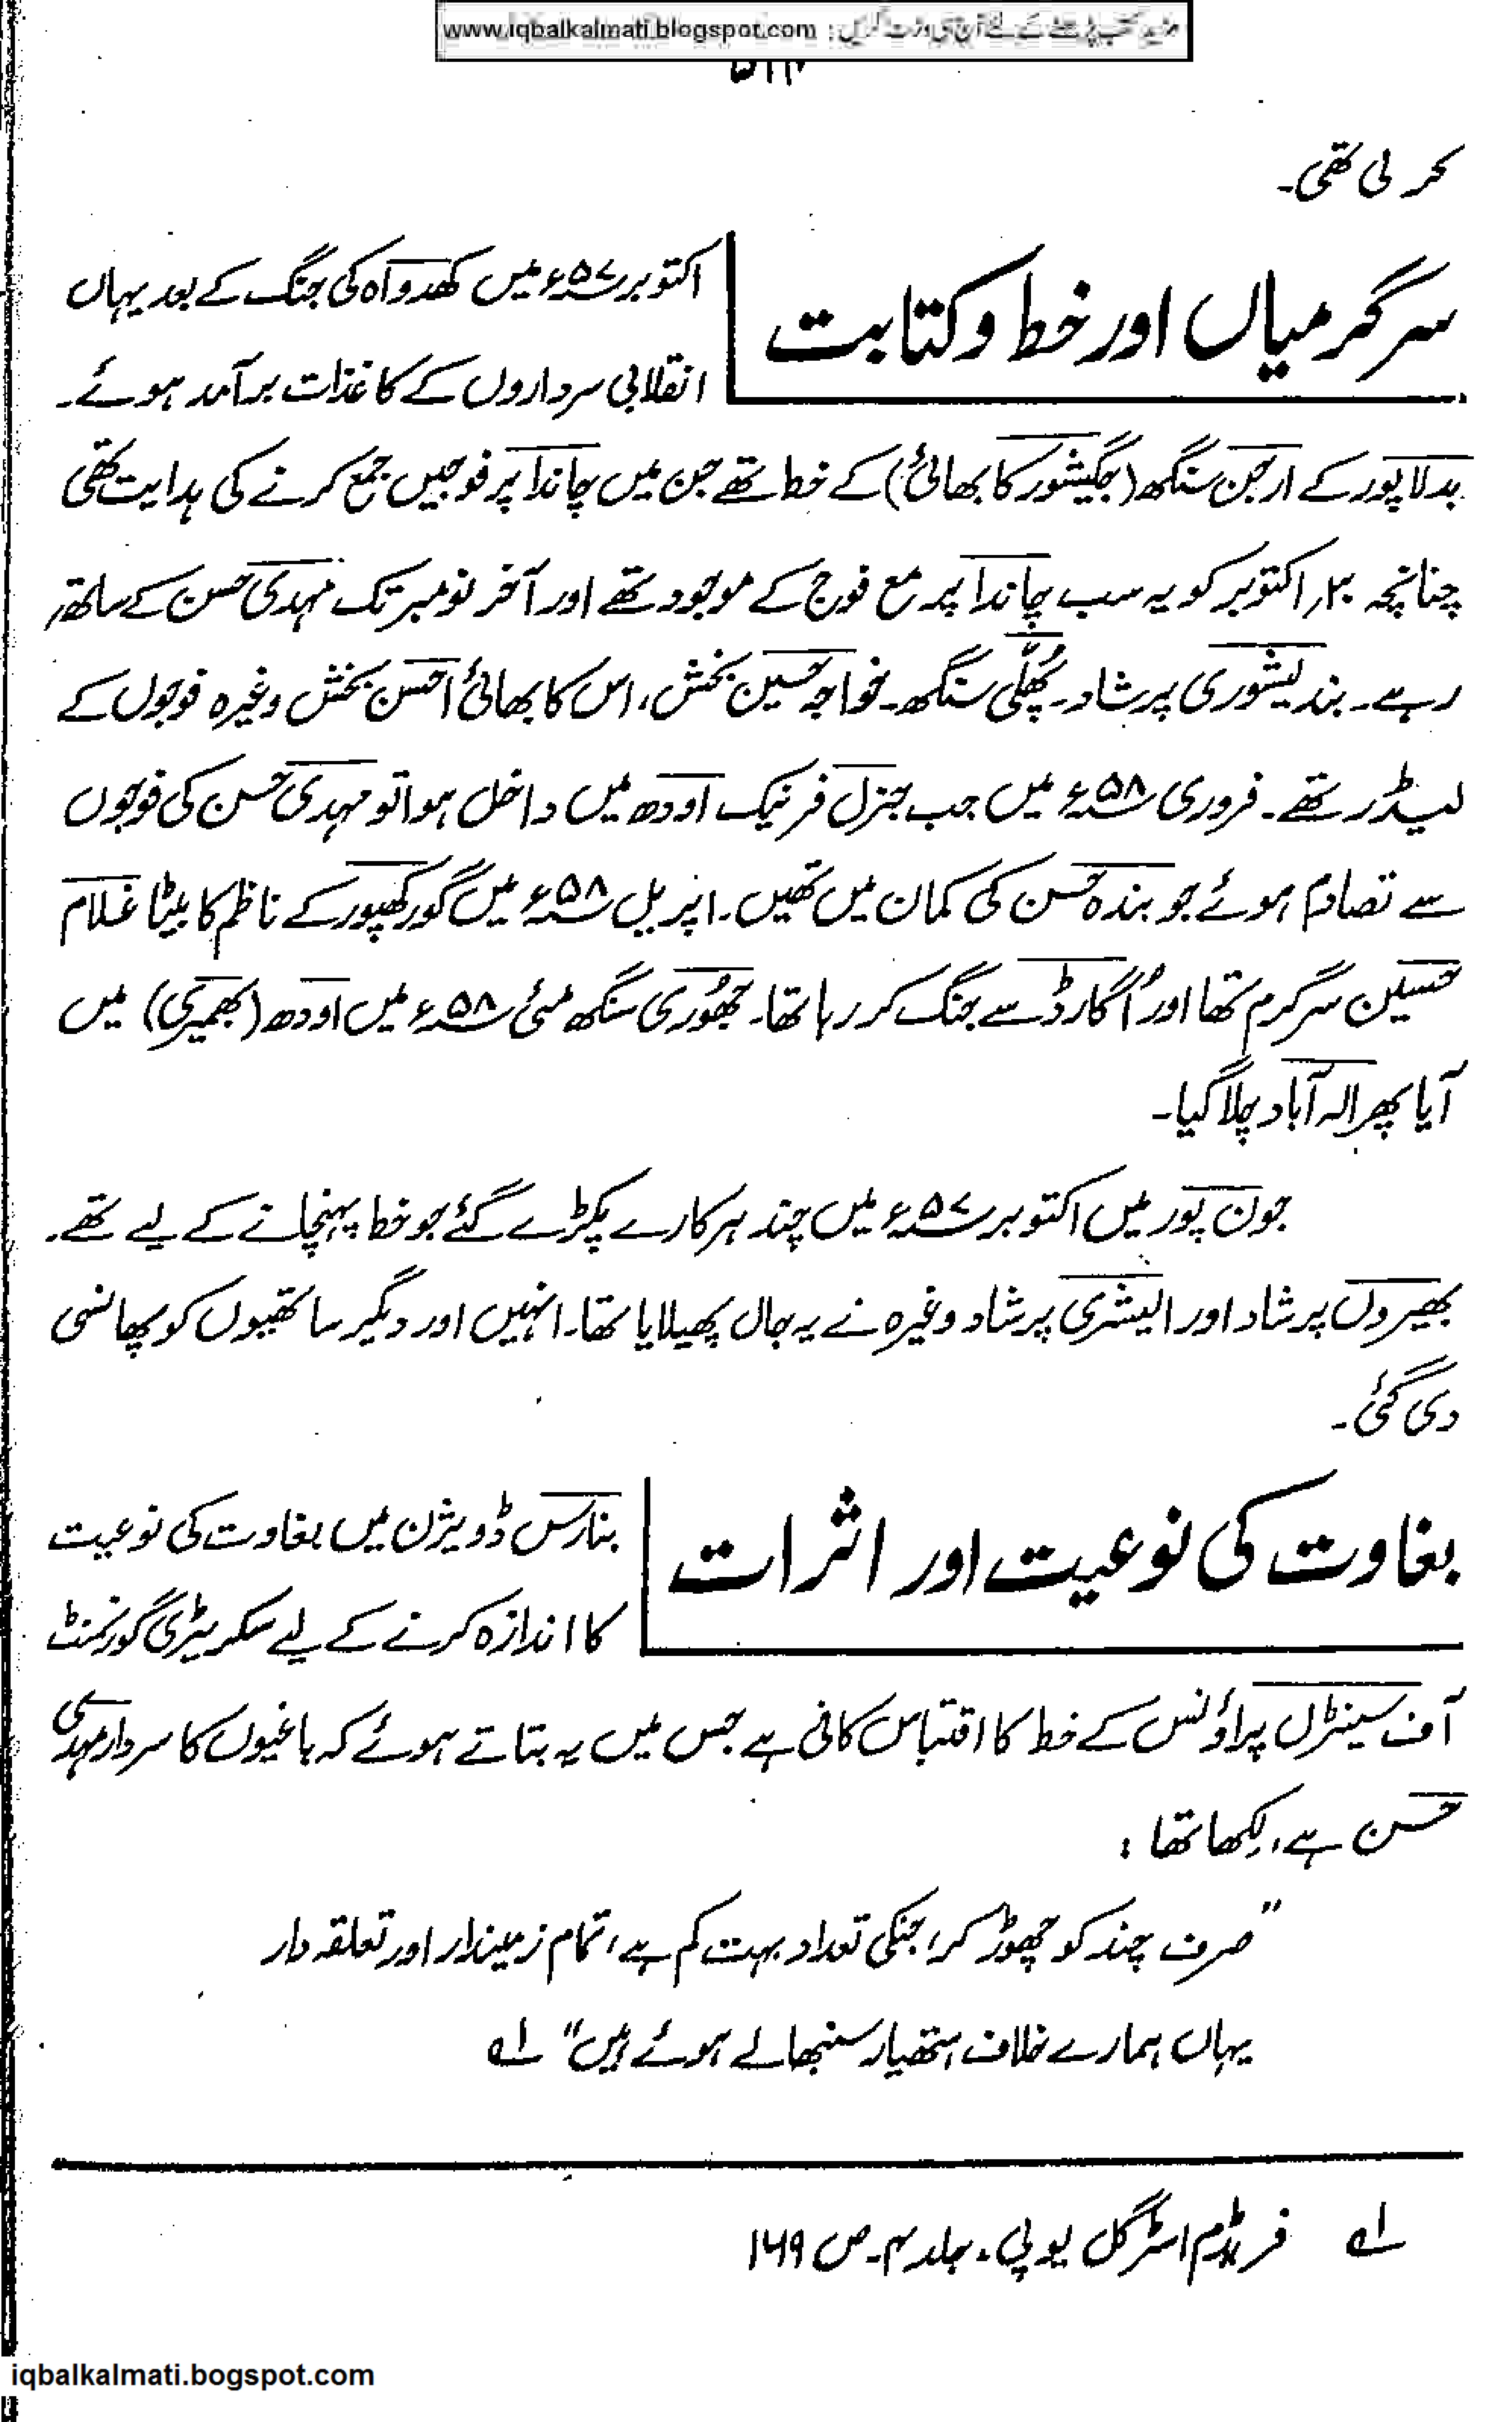 www.iqbalkalmati.blogspot.com : مزید کتب پڑھنے کے لئے آج ہی وزٹ کریں
کر لی تھی۔
سرگرمیاں اور خط و کتابت
اکتوبر ۵۷ء میں کھدواہ کی جنگ کے بعد یہاں
انقلابی سرداروں کے کاغذات برآمد ہوئے۔
بدلاپور کے ارجن سنگھ (جگیشور کا بھائی) کے خط تھے جن میں چاندا پر فوجیں جمع کرنے کی ہدایت تھی
چنانچہ ۲۰؍اکتوبر کو یہ سب چاندا پر مع فوج کے موجود تھے اور آخر نومبر تک مہدی حسن کے ساتھ
رہے۔ بندیشوری پرشاد۔ پُھلّی سنگھ۔ خواجہ حسین بخش، اس کا بھائی احسن بخش وغیرہ فوجوں کے
لیڈر تھے۔ فروری ۵۸ء میں جب جنرل فرنیک اودھ میں داخل ہوا تو مہدی حسن کی فوجوں
سے تصادم ہوئے جو بندہ حسن کی کمان میں تھیں۔ اپریل ۵۸ء میں گورکھپور کے ناظم کا بیٹا غلام
حسین سرگرم تھا اور اُگارڈ سے جنگ کر رہا تھا۔ جھُوری سنگھ مئی ۵۸ء میں اودھ (بھمیری) میں
آیا پھر الہ آباد چلا گیا۔
جون پور میں اکتوبر ۵۷ء میں چند ہرکارے پکڑے گئے جو خط پہنچانے کے لیے تھے۔
بھیروں پرشاد اور ایشری پرشاد وغیرہ نے یہ جال پھیلایا تھا۔ انہیں اور دیگر ساتھیوں کو پھانسی
دی گئی۔
بغاوت کی نوعیت اور اثرات
بنارس ڈویژن میں بغاوت کی نوعیت
کا اندازہ کرنے کے لیے سکریٹری گورنمنٹ
آف سینٹرل پراؤنس کے خط کا اقتباس کافی ہے جس میں یہ بتاتے ہوئے کہ باغیوں کا سردار مہدی
حسن ہے، لکھا تھا :
"صرف چند کو چھوڑ کر، جنکی تعداد بہت کم ہے، تمام زمیندار اور تعلقہ دار
یہاں ہمارے خلاف ہتھیار سنبھالے ہوئے ہیں" ۱ے
۱ے فریڈم اسٹرگل یو پی۔ جلد ۴۔ ص ۱۶۹
iqbalkalmati.bogspot.com